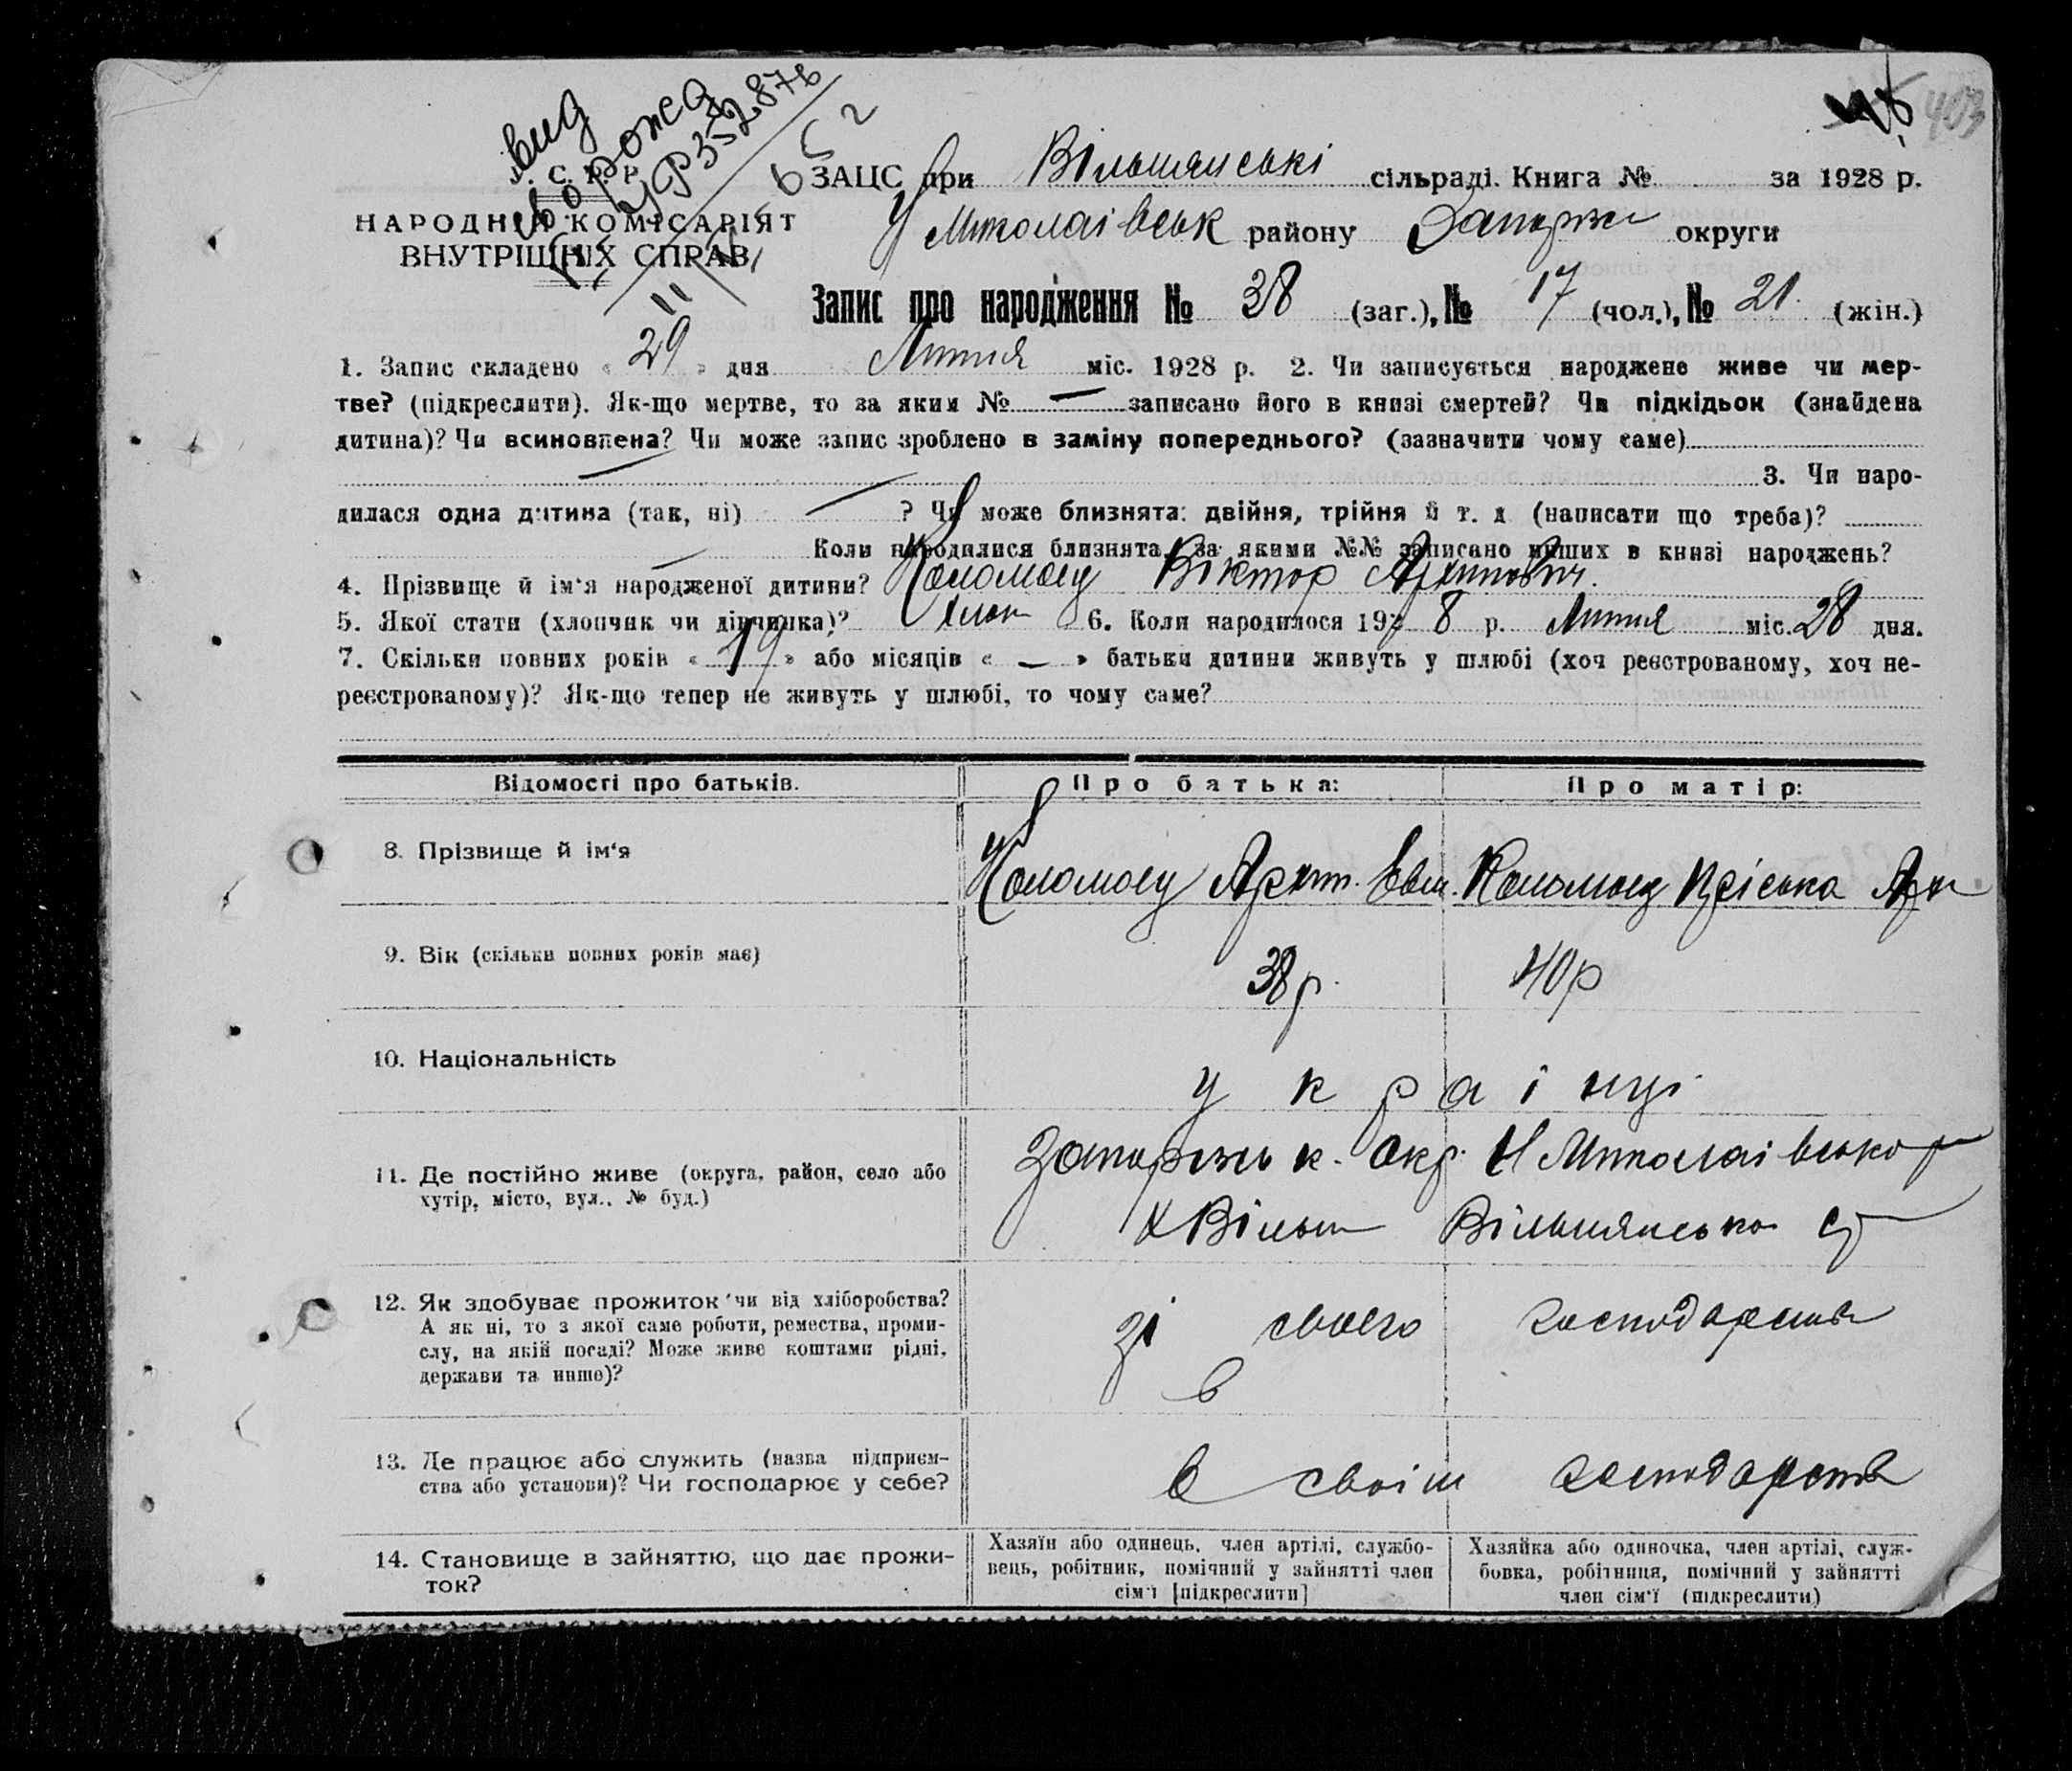 403
вид
УР 352876
У. С. Р. Р.
НАРОДНІЙ КОМІСАРІЯТ
ВНУТРІШНІХ СПРАВ
ЗАЦС при Вільшанські сільраді. Книга № за 1928 р.
Миколаівськ району Запоріж округи
Запис про народження № 38 (заг.), № 17 (чол.), № 21 (жін.)
1. Запис складено « 29 » дня Липня міс. 1928 р. 2. Чи записується народжене живе чи мер-
тве? (підкреслити). Як-що мертве, то за яким № — записано його в книзі смертей? Чи підкідьок (знайдена
дитина)? Чи всиновлена? Чи може запис зроблено в заміну попереднього? (зазначити чому саме)
— 3. Чи наро-
дилася одна дитина (так, ні) — ? Чи може близнята: двійня, трійня й т. д (написати що треба)?
— Коли народилися близнята, за якими №№ записано инших в книзі народжень?
4. Прізвище й ім‘я народженої дитини? Коломоец Віктор Архипович.
5. Якої стати (хлопчик чи дівчинка)? хлоп 6. Коли народилося 192 8 р. Липня міс. 28 дня.
7. Скільки повних років « 19 » або місяців « — » батьки дитини живуть у шлюбі (хоч реєстрованому, хоч не-
реєстрованому)? Як-що тепер не живуть у шлюбі, то чому саме?
Відомості про батьків. Про батька: Про матір:
8. Прізвище й ім‘я Коломоец Архип. Коломоец Пріська
9. Вік (скільки повних років має) 38 р. 40 р
10. Національність українці
11. Де постійно живе (округа, район, село або
хутір, місто, вул., № буд.)
Запорізьк. окр. Н Миколаівсько р
х Вільш Вільшянсько ср
12. Як здобуває прожиток чи від хліборобства?
А як ні, то з якої саме роботи, ремества, проми-
слу, на якій посаді? Може живе коштами рідні,
держави та инше)?
зі свого господарства
в
13. Де працює або служить (назва підприєм-
ства або установи)? Чи господарює у себе?
в своім господарстві
14. Становище в зайняттю, що дає прожи-
ток?
Хазяїн або одинець, член артілі, службо-
вець, робітник, помічний у зайнятті член
сім‘ї [підкреслити]
Хазяйка або одиночка, член артілі, служ-
бовка, робітниця, помічний у зайнятті
член сім‘ї (підкреслити)